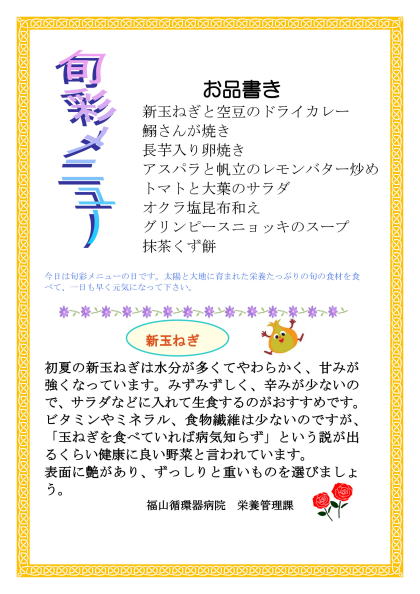 旬彩メニュー
お品書き
新玉ねぎと空豆のドライカレー
鰯さんが焼き
長芋入り卵焼き
アスパラと帆立のレモンバター炒め
トマトと大葉のサラダ
オクラ塩昆布和え
グリンピースニョッキのスープ
抹茶くず餅
今日は旬彩メニューの日です。太陽と大地に育まれた栄養たっぷりの旬の食材を食
べて、一日も早く元気になって下さい。
新玉ねぎ
初夏の新玉ねぎは水分が多くてやわらかく、甘みが
強くなっています。みずみずしく、辛みが少ないの
で、サラダなどに入れて生食するのがおすすめです。
ビタミンやミネラル、食物繊維は少ないのですが、
「玉ねぎを食べていれば病気知らず」という説が出
るくらい健康に良い野菜と言われています。
表面に艶があり、ずっしりと重いものを選びましょ
う。
福山循環器病院　栄養管理課